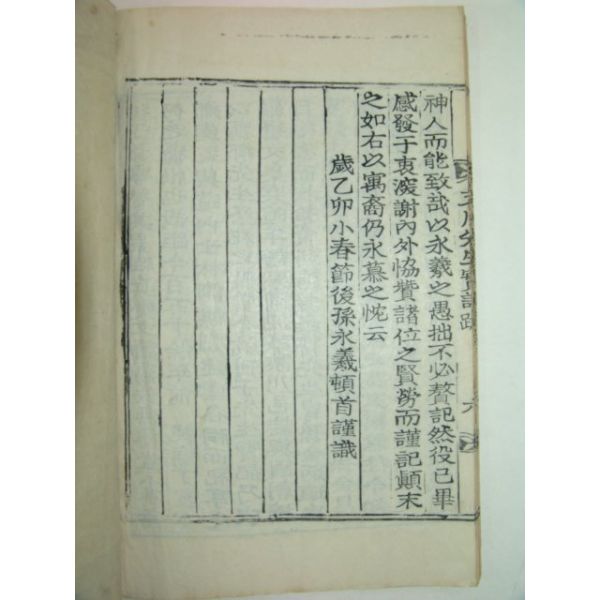 神人而能致哉以永羲之愚拙不必贅記然役已畢
感發于衷湥謝內外恊贊諸位之賢勞而謹記顚末
之如右以寓裔仍永慕之忱云
歲乙卯小春節後孫永羲頓首謹識
先生實記跋
六